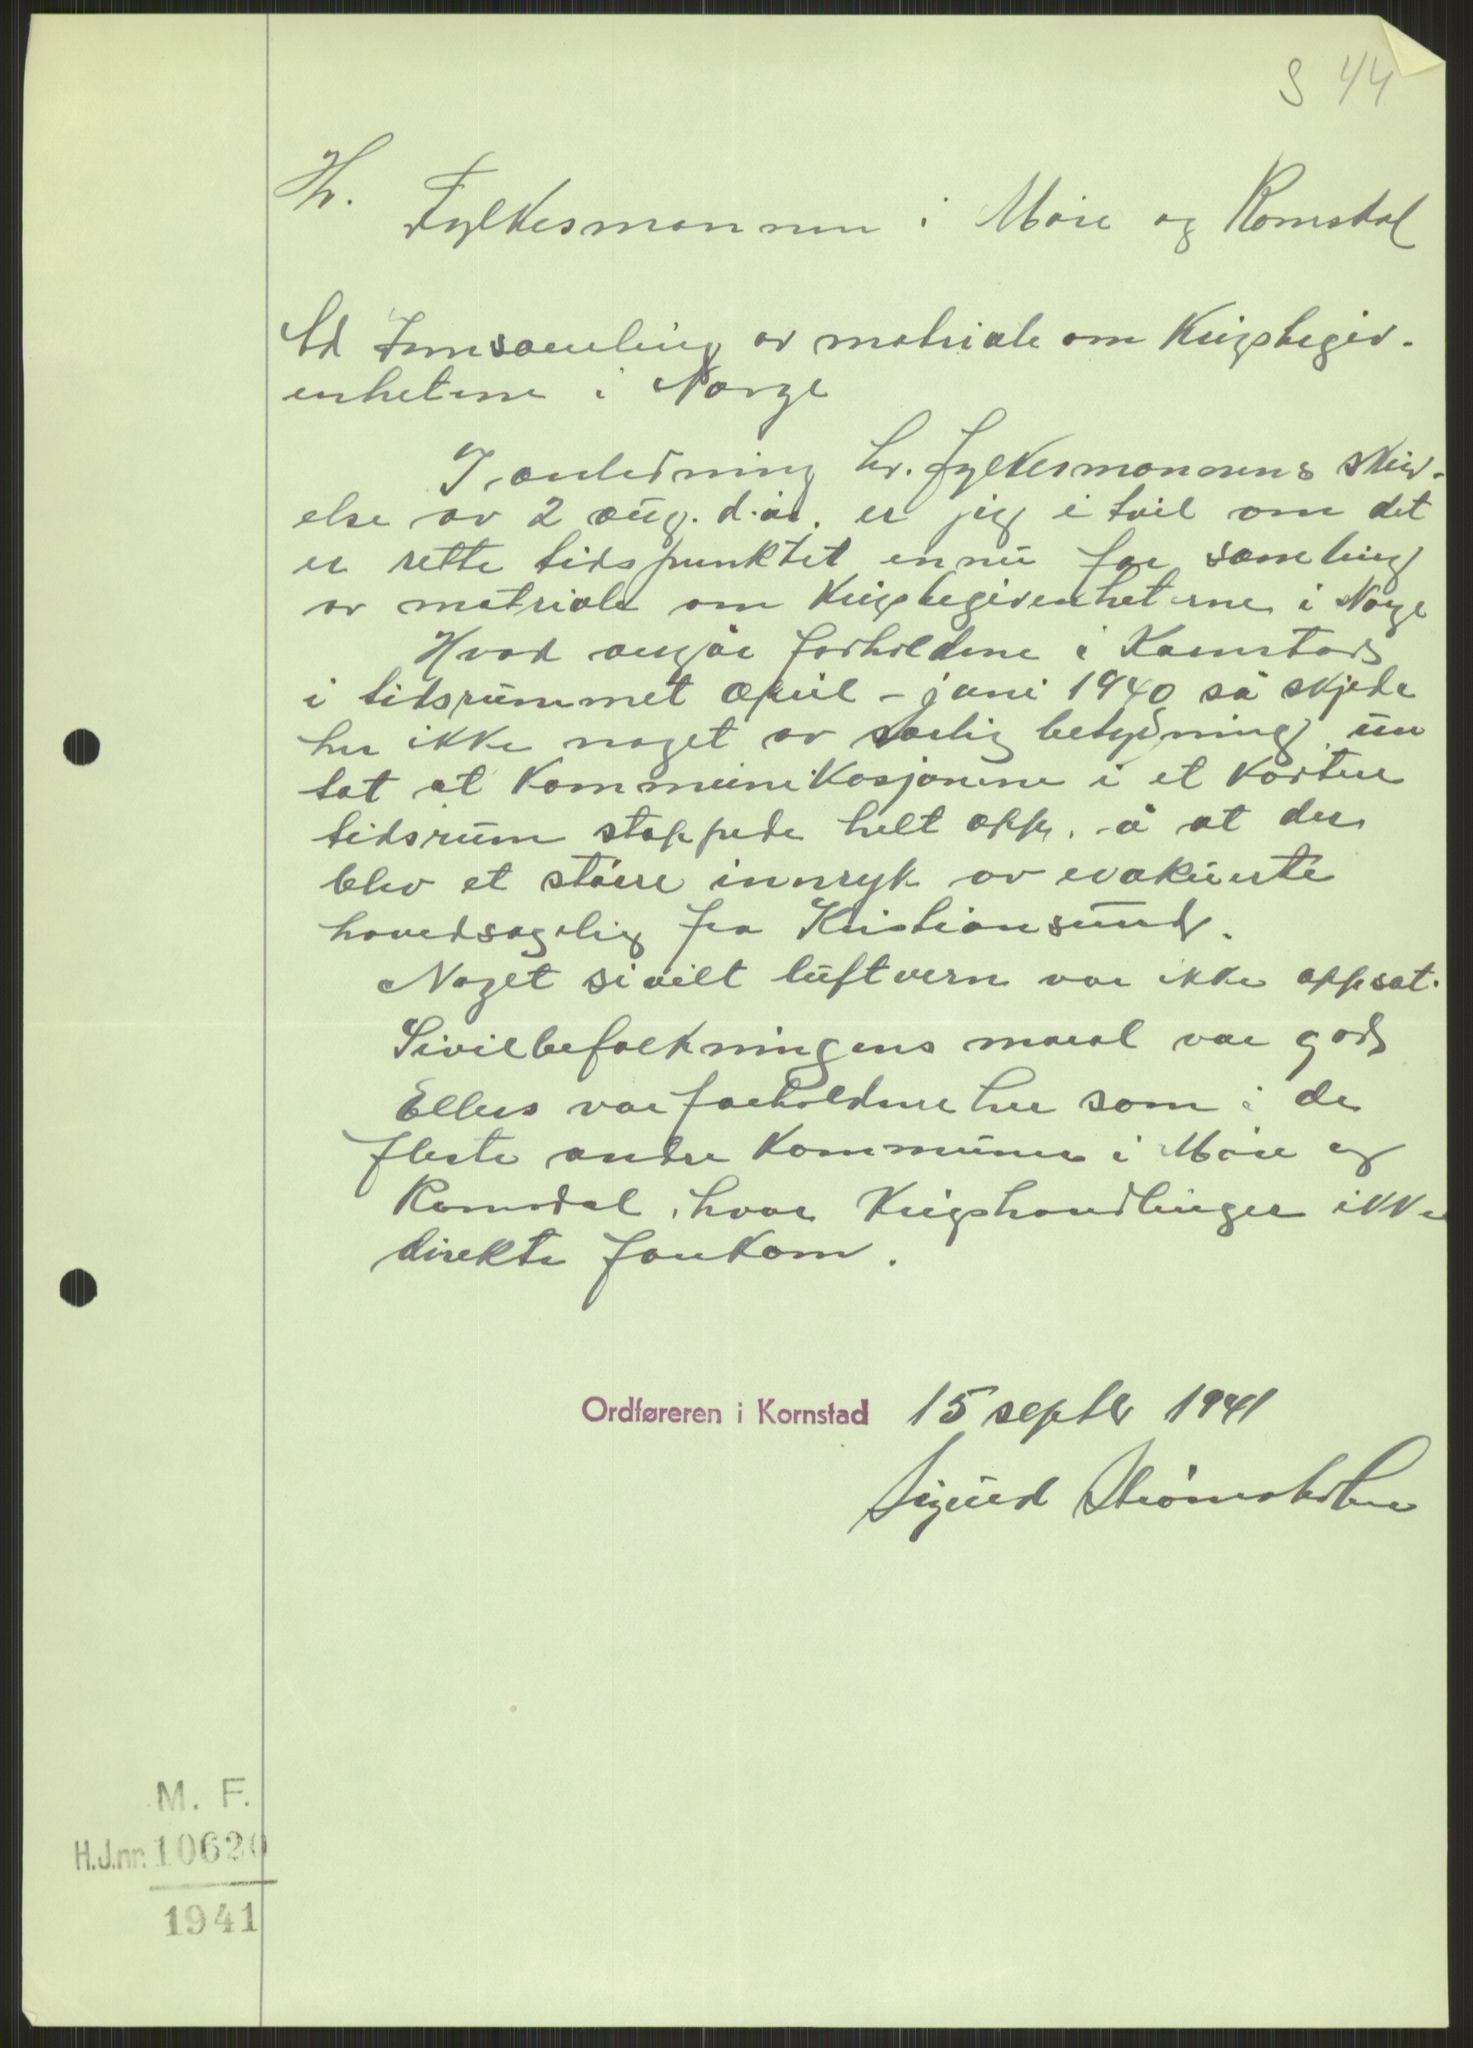 S 44
Hr.
Fylkesmannen i Møre og Romsdal
Ad Innsamling av matriale om Krigsbegiv-
enhetene i Norge
I anledning hr. fylkesmannens skriv-
else av 2 aug. d.år. er jeg i tvil om det
er rette tidspunktet ennu for samling
av matriale om Krigsbegivenheterne i Norge
Hvad angår forholdene i Kornstad
i tidsrummet April - juni 1940 så skjede
her ikke noget av særlig betydning, un
tat at Kommunikasjonene i et kortere
tidsrum stoppede helt opp, å at der
blev et større innryk av evakuerte
hovedsagelig fra Kristiansund.
Noget sivilt luftvern var ikke oppsat.
Sivilbefolkningens moral var god
Ellers var forholdene her som i de
fleste andre Kommuner i Møre og
Romsdal, hvor Krigshandlinger ikke
direkte forekom.
Ordføreren i Kornstad 15 septbr 1941
Sigurd
M. F.
H.J.nr. 10620
1941